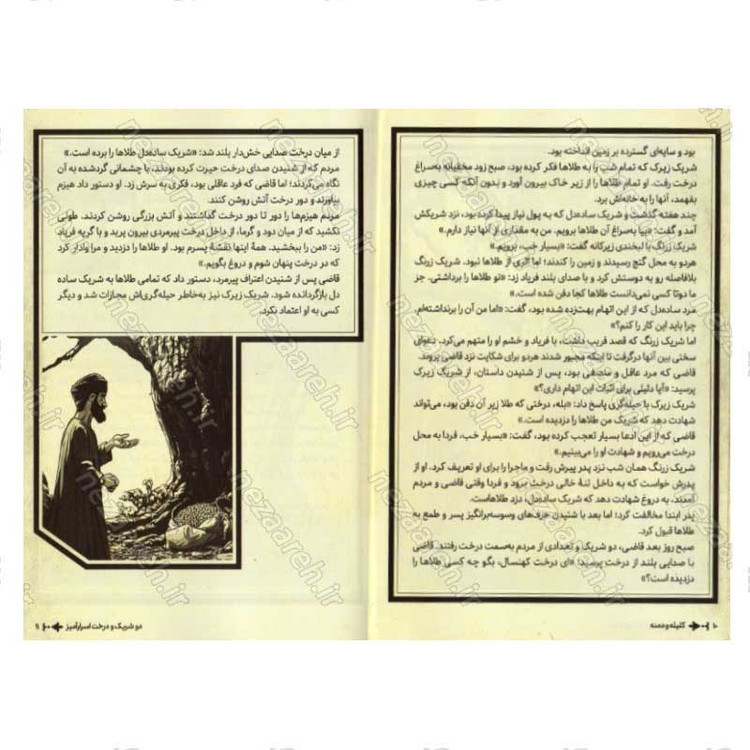 بود و سایه‌ای گسترده بر زمین انداخته بود.
شریک زیرک که تمام شب را به طلاها فکر کرده بود، صبح زود مخفیانه به‌سراغ
درخت رفت. او تمام طلاها را از زیر خاک بیرون آورد و بدون آنکه کسی چیزی
بفهمد، آنها را به خانه‌اش برد.
چند هفته گذشت و شریک ساده‌دل که به پول نیاز پیدا کرده بود، نزد شریکش
آمد و گفت: «بیا به‌سراغ آن طلاها برویم. من به مقداری از آنها نیاز دارم.»
شریک زرنگ با لبخندی زیرکانه گفت: «بسیار خب، برویم.»
هردو به محل گنج رسیدند و زمین را کندند؛ اما اثری از طلاها نبود. شریک زیرک
بلافاصله رو به دوستش کرد و با صدای بلند فریاد زد: «تو طلاها را برداشتی. جز
ما دوتا کسی نمی‌دانست طلاها کجا دفن شده است.»
مرد ساده‌دل که از این اتهام بهت‌زده شده بود، گفت: «اما من آن را برنداشته‌ام،
چرا باید این کار را کنم؟»
اما شریک زرنگ که قصد فریب داشت، با فریاد و خشم او را متهم می‌کرد. دعوای
سختی بین آنها درگرفت تا اینکه مجبور شدند هردو برای شکایت نزد قاضی بروند.
قاضی که مرد عاقل و منصفی بود، پس از شنیدن داستان، از شریک زیرک
پرسید: «آیا دلیلی برای اثبات این اتهام داری؟»
شریک زیرک با حیله‌گری پاسخ داد: «بله، درختی که طلا زیر آن دفن بود، می‌تواند
شهادت دهد که شریک من طلاها را دزدیده است.»
قاضی که از این ادعا بسیار تعجب کرده بود، گفت: «بسیار خب، فردا به محل
درخت می‌رویم و شهادت او را می‌بینیم.»
شریک زرنگ همان شب نزد پدر پیرش رفت و ماجرا را برای او تعریف کرد. او از
پدرش خواست که به داخل تنهٔ خالی درخت برود و فردا وقتی قاضی و مردم
آمدند، به دروغ شهادت دهد که شریک ساده‌دل، دزد طلاهاست.
پدر ابتدا مخالفت کرد؛ اما بعد با شنیدن حرف‌های وسوسه‌برانگیز پسر و طمع به
طلاها قبول کرد.
صبح روز بعد قاضی، دو شریک و تعدادی از مردم به‌سمت درخت رفتند. قاضی
با صدایی بلند از درخت پرسید: «ای درخت کهنسال، بگو چه کسی طلاها را
دزدیده است؟»
۱۰ کلیله و دمنه
از میان درخت صدایی خش‌دار بلند شد: «شریک ساده‌دل طلاها را برده است.»
مردم که از شنیدن صدای درخت حیرت کرده بودند، با چشمانی گردشده به آن
نگاه می‌کردند؛ اما قاضی که فرد عاقلی بود، فکری به سرش زد. او دستور داد هیزم
بیاورند و دور درخت آتش روشن کنند.
مردم هیزم‌ها را دور تا دور درخت گذاشتند و آتش بزرگی روشن کردند. طولی
نکشید که از میان دود و گرما، از داخل درخت پیرمردی بیرون پرید و با گریه فریاد
زد: «من را ببخشید. همهٔ اینها نقشهٔ پسرم بود. او طلاها را دزدید و مرا وادار کرد
که در درخت پنهان شوم و دروغ بگویم.»
قاضی پس از شنیدن اعتراف پیرمرد، دستور داد که تمامی طلاها به شریک ساده
دل بازگردانده شود. شریک زیرک نیز به‌خاطر حیله‌گری‌اش مجازات شد و دیگر
کسی به او اعتماد نکرد.
دو شریک و درخت اسرارآمیز ۱۱
nezaareh.ir